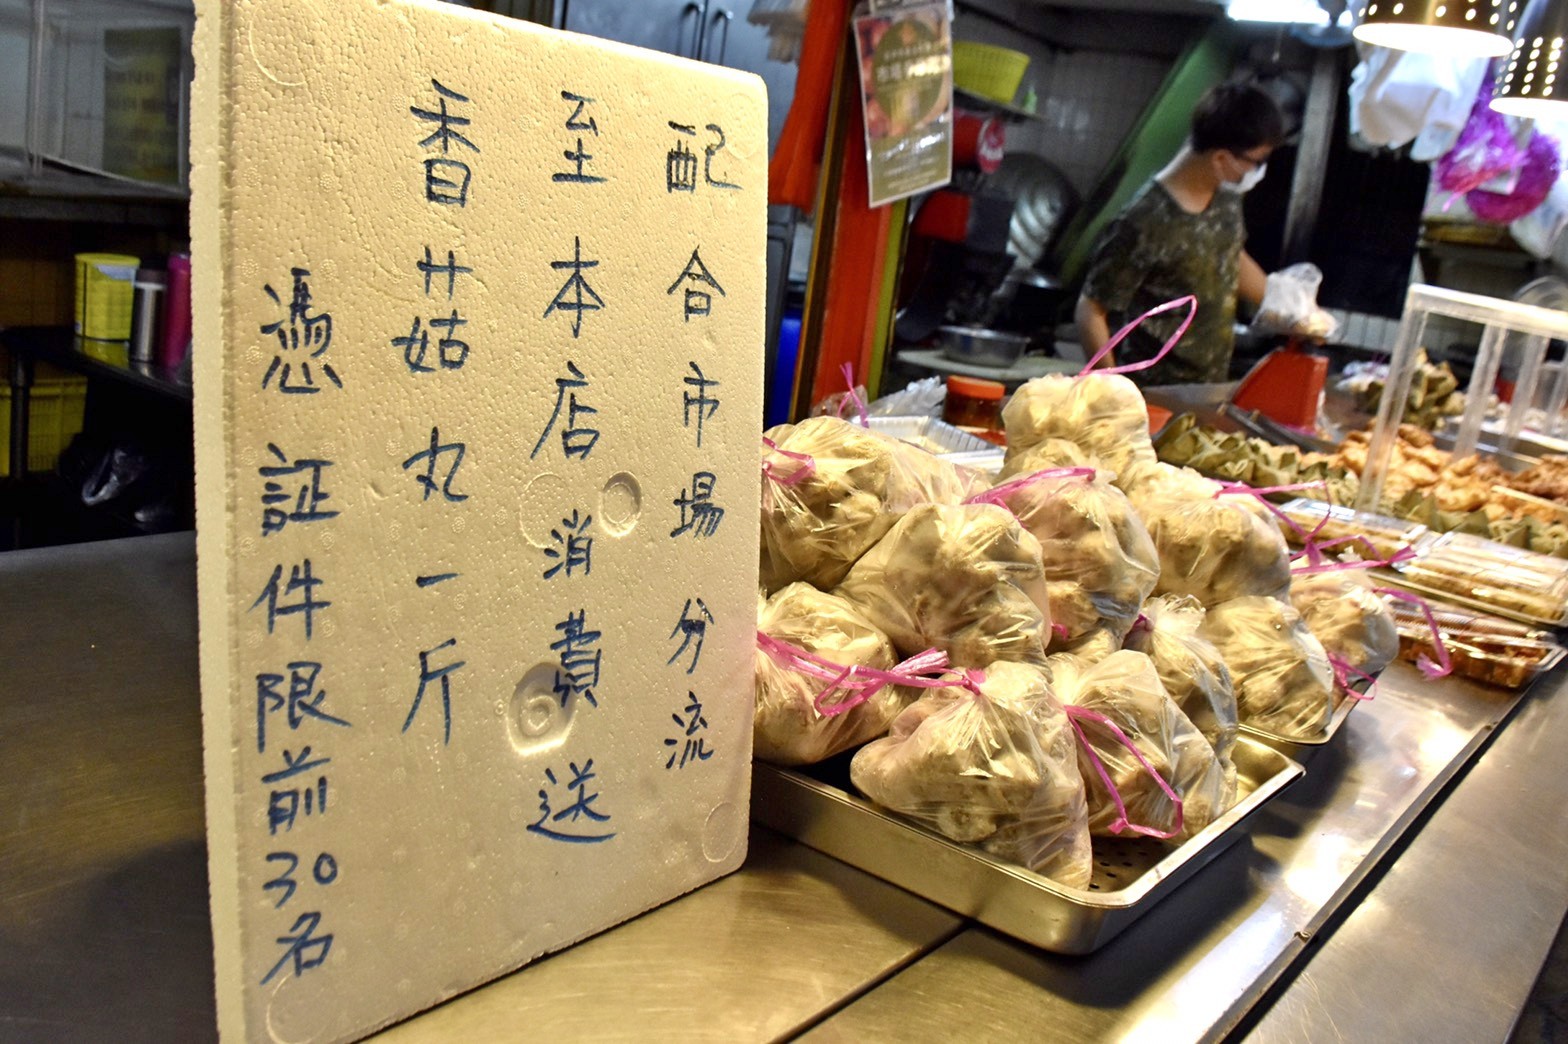 配合市場分流
至本店消費送
香廿菇丸一斤
憑証件限前30名